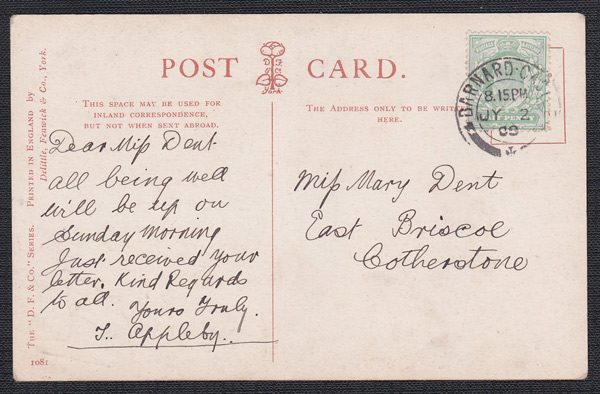 POST CARD.
THIS SPACE MAY BE USED FOR
INLAND CORRESPONDENCE,
BUT NOT WHEN SENT ABROAD.
THE ADDRESS ONLY TO BE WRITTEN
HERE.
Dear Miss Dent
all being well
will be up on
Sunday Morning
Just received your
letter. Kind Regards
to all.
Yours Truly.
T. Appleby.
Miss Mary Dent
East Briscoe
Cotherstone
BARNARD-CA
8.15PM
JY 2
09
THE "D. F. & CO." SERIES. PRINTED IN ENGLAND by
Delittle, Fenwick & Co., York.
1081